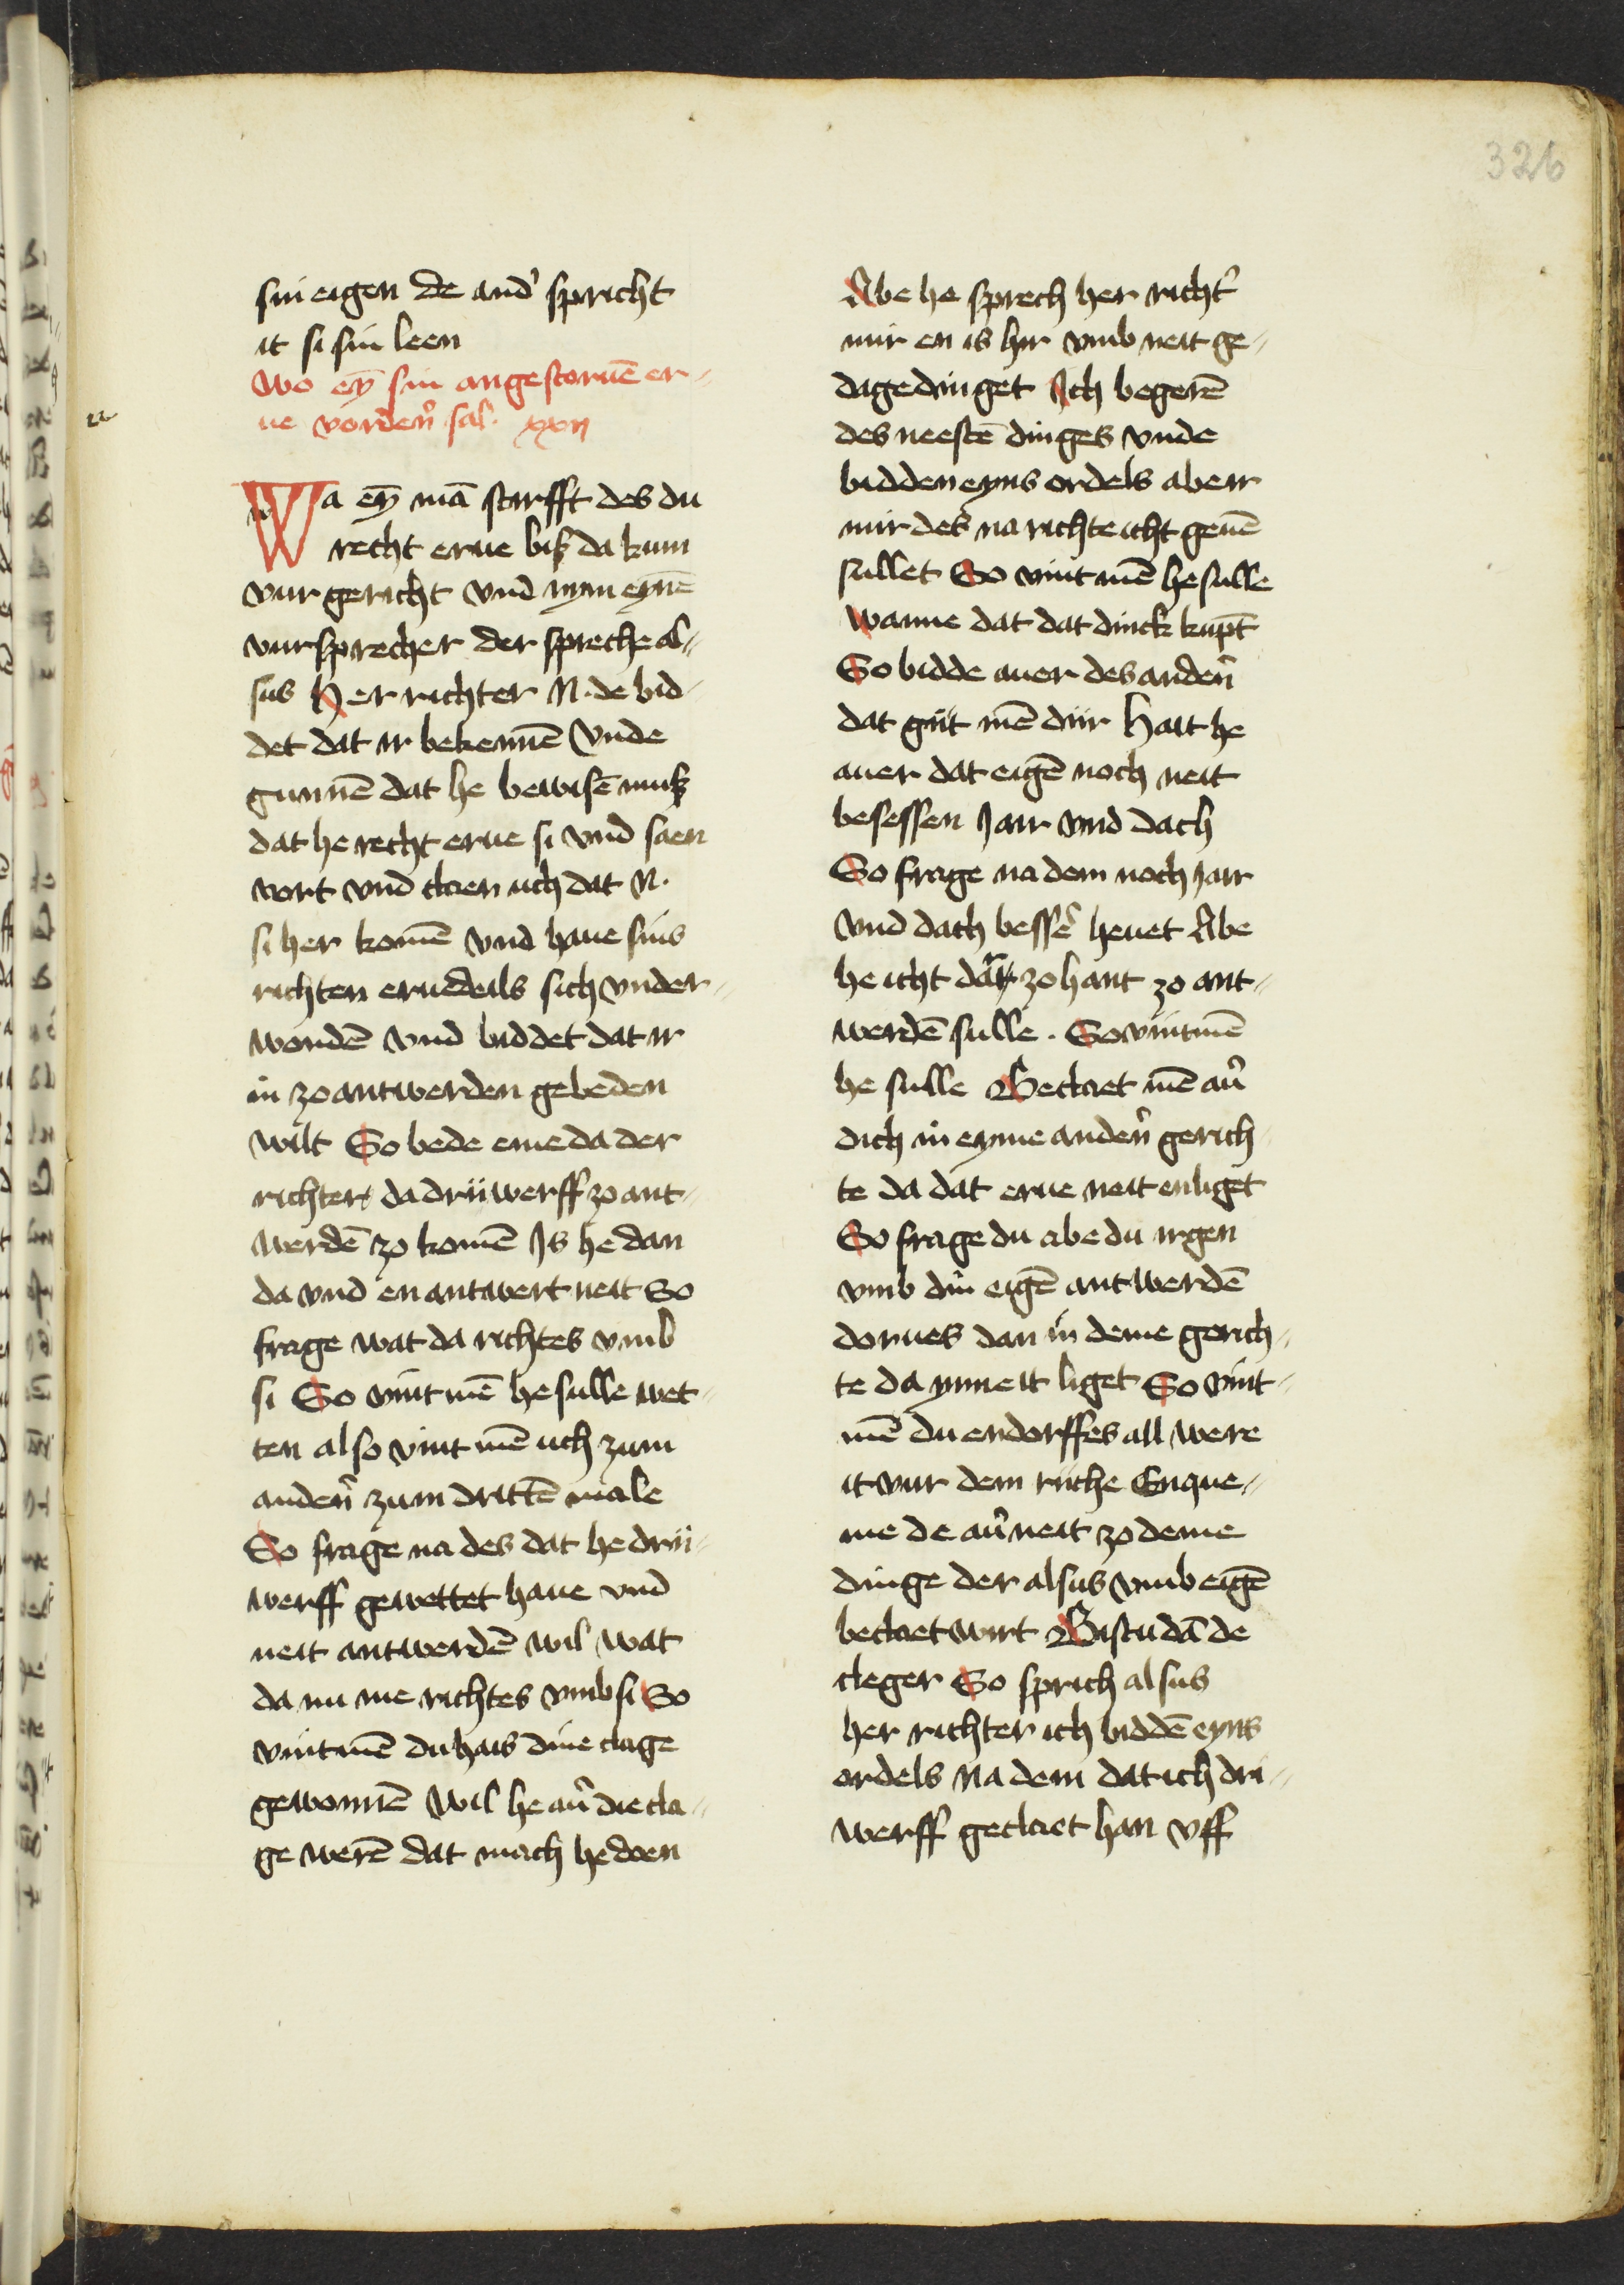 326
sin eigen de and᷑ spricht
it si sin leen
Wo ey̅ sin angestoruē er-
ue vorden᷑ sal. xxij
Wa ey̅ mā starfft des du
recht erue bis da kum
vur gericht vnd nym eynē
vursprecher der spreche al-
sus Her richter N. de bid-
det dat ir bekennē vnde
gunnē dat he bewisē muß
dat he recht erue si vnd saen
vort vnd claen uch dat N.
si her komē vnd haue sins
richten erue deils sich vnder-
wondē vnd biddet dat ir
in zo antwerden gebeden
wilt So bede eme da der
richter da driiwerff zo ant-
werdē zo komē Is he dan
da vnd en antwert neit So
frage wat da richtes vmb
si So vint mē he sulle wet-
ten also vint mē uch zum
anden᷑ zum drittē male
So frage na des dat he drii-
werff gewettet haue vnd
neit antwerdē wil wat
da nu me richtes vmb si So
vint mē du hais dine clage
gewonnē Wil he au᷑ die cla-
ge werē dat mach he doen
Abe he sprech her richt᷑
mir en is hir vmb neit ge-
dagedinget Ich begerē
des neestē dinges vnde
bidden eyns ordels abe ir
mir des na richte icht geuē
sullet So vint mē he sulle
Wanne dat dat dinck kūpt
So bidde auer des anden᷑
dat giit mē diir Hait he
auer dat eigē noch neit
besessen Jair vnd dach
So frage na dem noch jair
vnd dach bessē heuet Abe
he icht dar zo hant zo ant-
werdē sulle. So vint mē
he sulle Beclaet mē au᷑
dich in eyme anden᷑ gerich-
te da dat erue neit en liget
So frage du abe du irgen
vmb din eigē antwerdē
dorues dan in deme gerich-
te da ynne it liget So vint-
mē du en dorffes all were
it vur dem riiche Enque-
me de au᷑ neit zo deme
dinge der alsus vmb eigē
beclaet wirt Bistu dā de
cleger So sprich alsus
her richter ich biddē eyns
ordels Na dem dat ich dri-
werff geclaet han vff